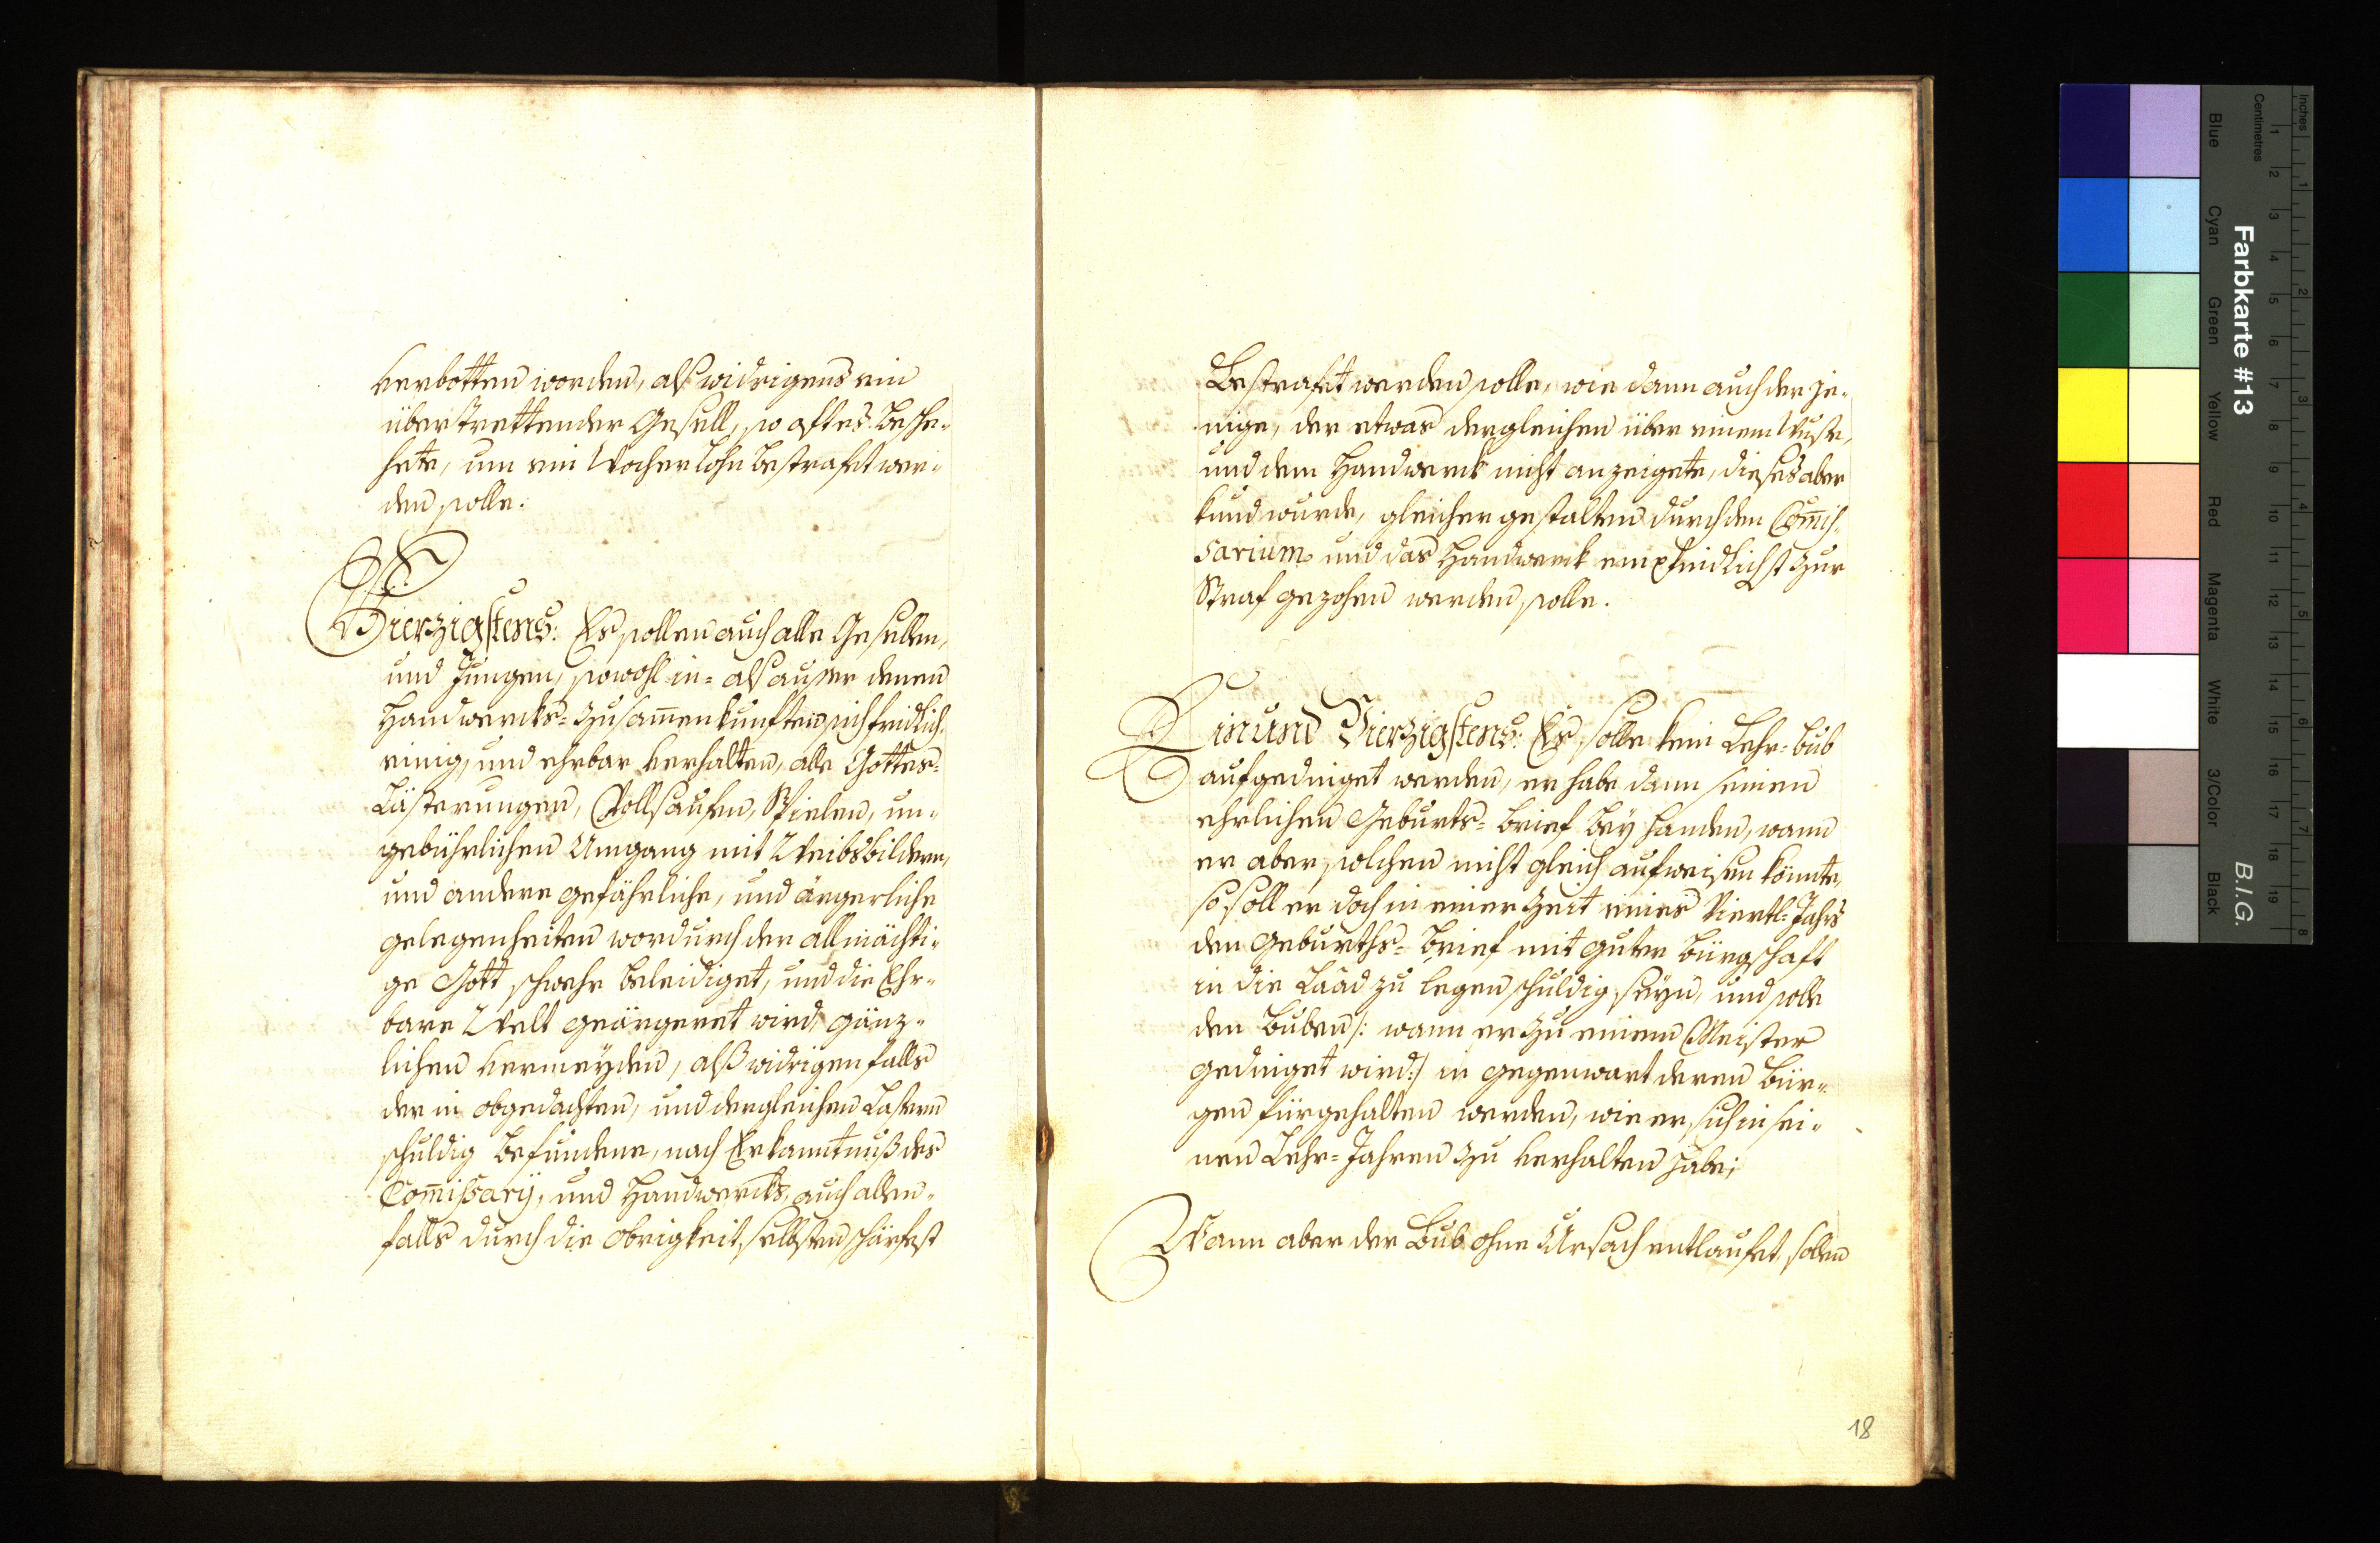 verbotten worden, alß widrigens ein
überstrettender Gesell, so oft es besche-
hete, um ein Wochenlohn bestrafet wer-
den solle.
Vierzigstens: Es sollen auch alle Gesellen,
und Jungen, sowohl in- alß ausser denen
Handwercks- Zusam̅enkunften sich fridlich,
einig, und ehrbar verhalten, alle Gottes-
Lästerungen, Vollsaufen, Spielen, un-
gebührlichen Umgang mit Weibsbildern,
und andere gefährliche, und ärgerliche
gelegenheiten wordurch der allmächti-
ge Gott schwehr beleidiget, und die Ehr-
bare Welt geärgeret wird, gänz-
lichen vermeyden, alß widrigenfalls
der in obgedachten, und dergleichen Lastern
schuldig befundene, nach Erkanntnuß des
Com̅ißarij, und Handwercks, auch allen-
falls durch die obrigkeit selbsten schärfest
Bestrafet werden solle, wie dann auch der je-
nige, der etwas dergleichen über einem Wuste,
und dem Handwerck nicht anzeigete, dieses aber
kund wurde, gleichergestalten durch den Com̅is-
sarium und das Handwerck empfindlichst zur
Straf gezohen werden solle.
Ein und Vierzigstens: Es solle kein Lehr-bub
aufgedinget werden, er habe dann seinen
ehrlichen Geburts- brief bey handen, wann
er aber solchen nicht gleich aufweisen könnte,
so soll er doch in einer Zeit eines Viertl-Jahrs
den Geburths- brief mit guter bürgschaft
in die Laad zu legen schuldig seyn, und solle
den buben /: wann er zu einem Meister
gedinget wird:/ in gegenwart deren bür-
gen fürgehalten werden, wie er sich in sei-
nen Lehr-Jahren zu verhalten habe;
Wann aber der Bub ohne Ursach entlaufet, sollen
18
Farbkarte #13
B.I.G.
Inches
Centimetres
1 2 3 4 5 6 7 8 9 10 11 12 13 14 15 16 17 18 19
1 2 3 4 5 6 7 8
Blue Cyan Green Yellow Red Magenta White 3/Color Black